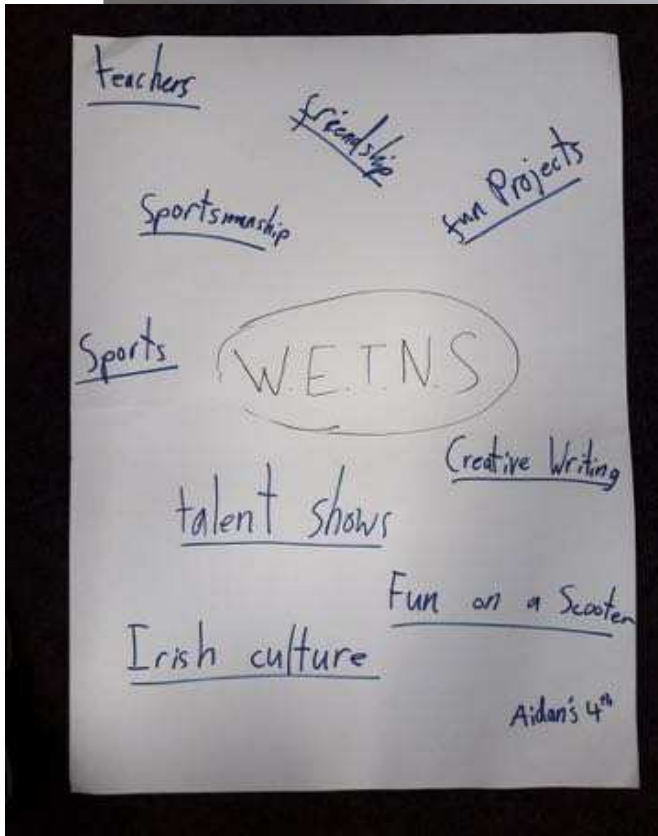 teachers
friendship
fun Projects
Sportsmanship
Sports
W.E.T.N.S
Creative Writing
talent shows
Fun on a Scooter
Irish culture
Aidan's 4th